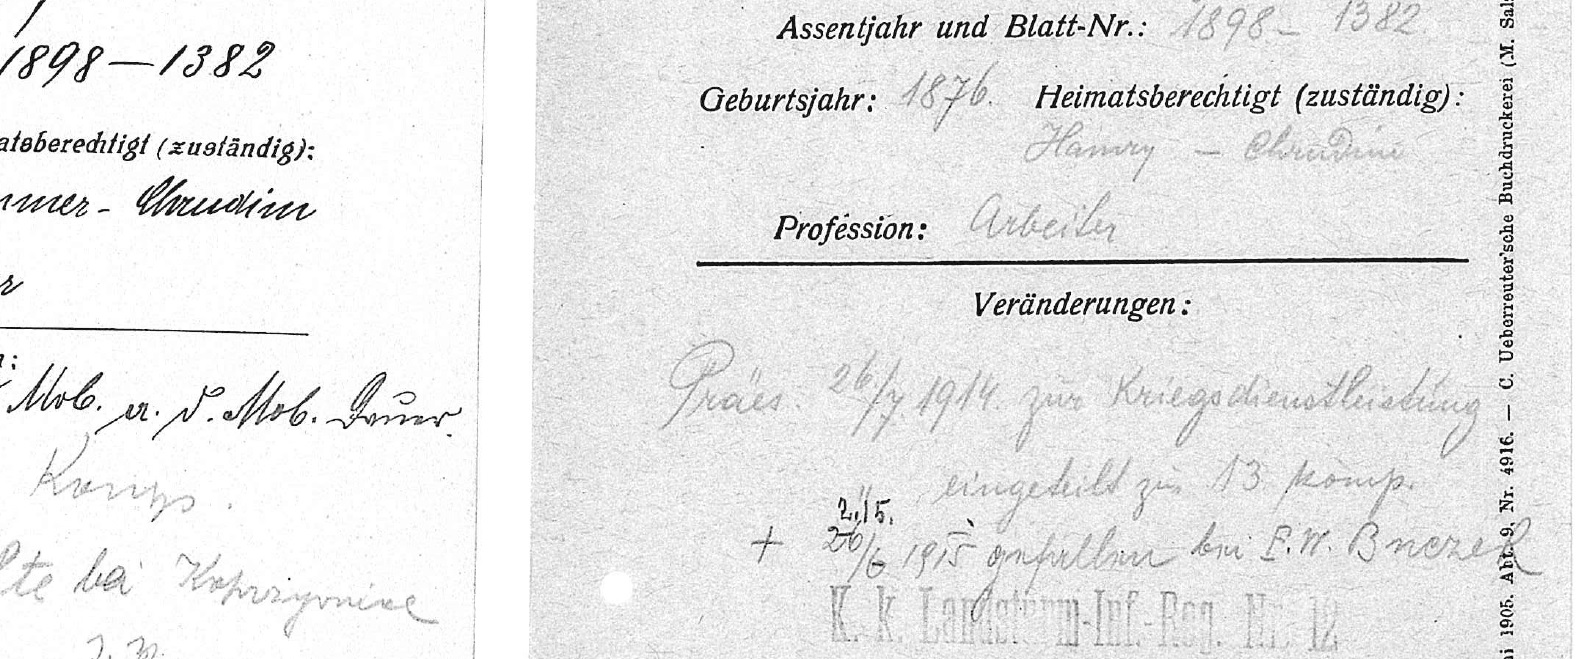 1898–1382
atsberechtigt (zuständig):
mmer - Chrudim
r
n:
Mob. a. d. Mob. Dauer.
Komp.
bei
Assentjahr und Blatt-Nr.: 1898 – 1382
Geburtsjahr: 1876. Heimatsberechtigt (zuständig):
Hamry – Chrudim
Profession: Arbeiter
Veränderungen:
Präes 26/7 1914 zur Kriegsdienstleistung
eingeteilt zur 13 komp.
2./5.
+ 26/6 1915 gefallen bei F.W.
K. k. Landsturm-Inf.-Reg. Nr. 12
ni 1905. Abt. 9, Nr. 4916. — C. Ueberreuter'sche Buchdruckerei (M. Sal